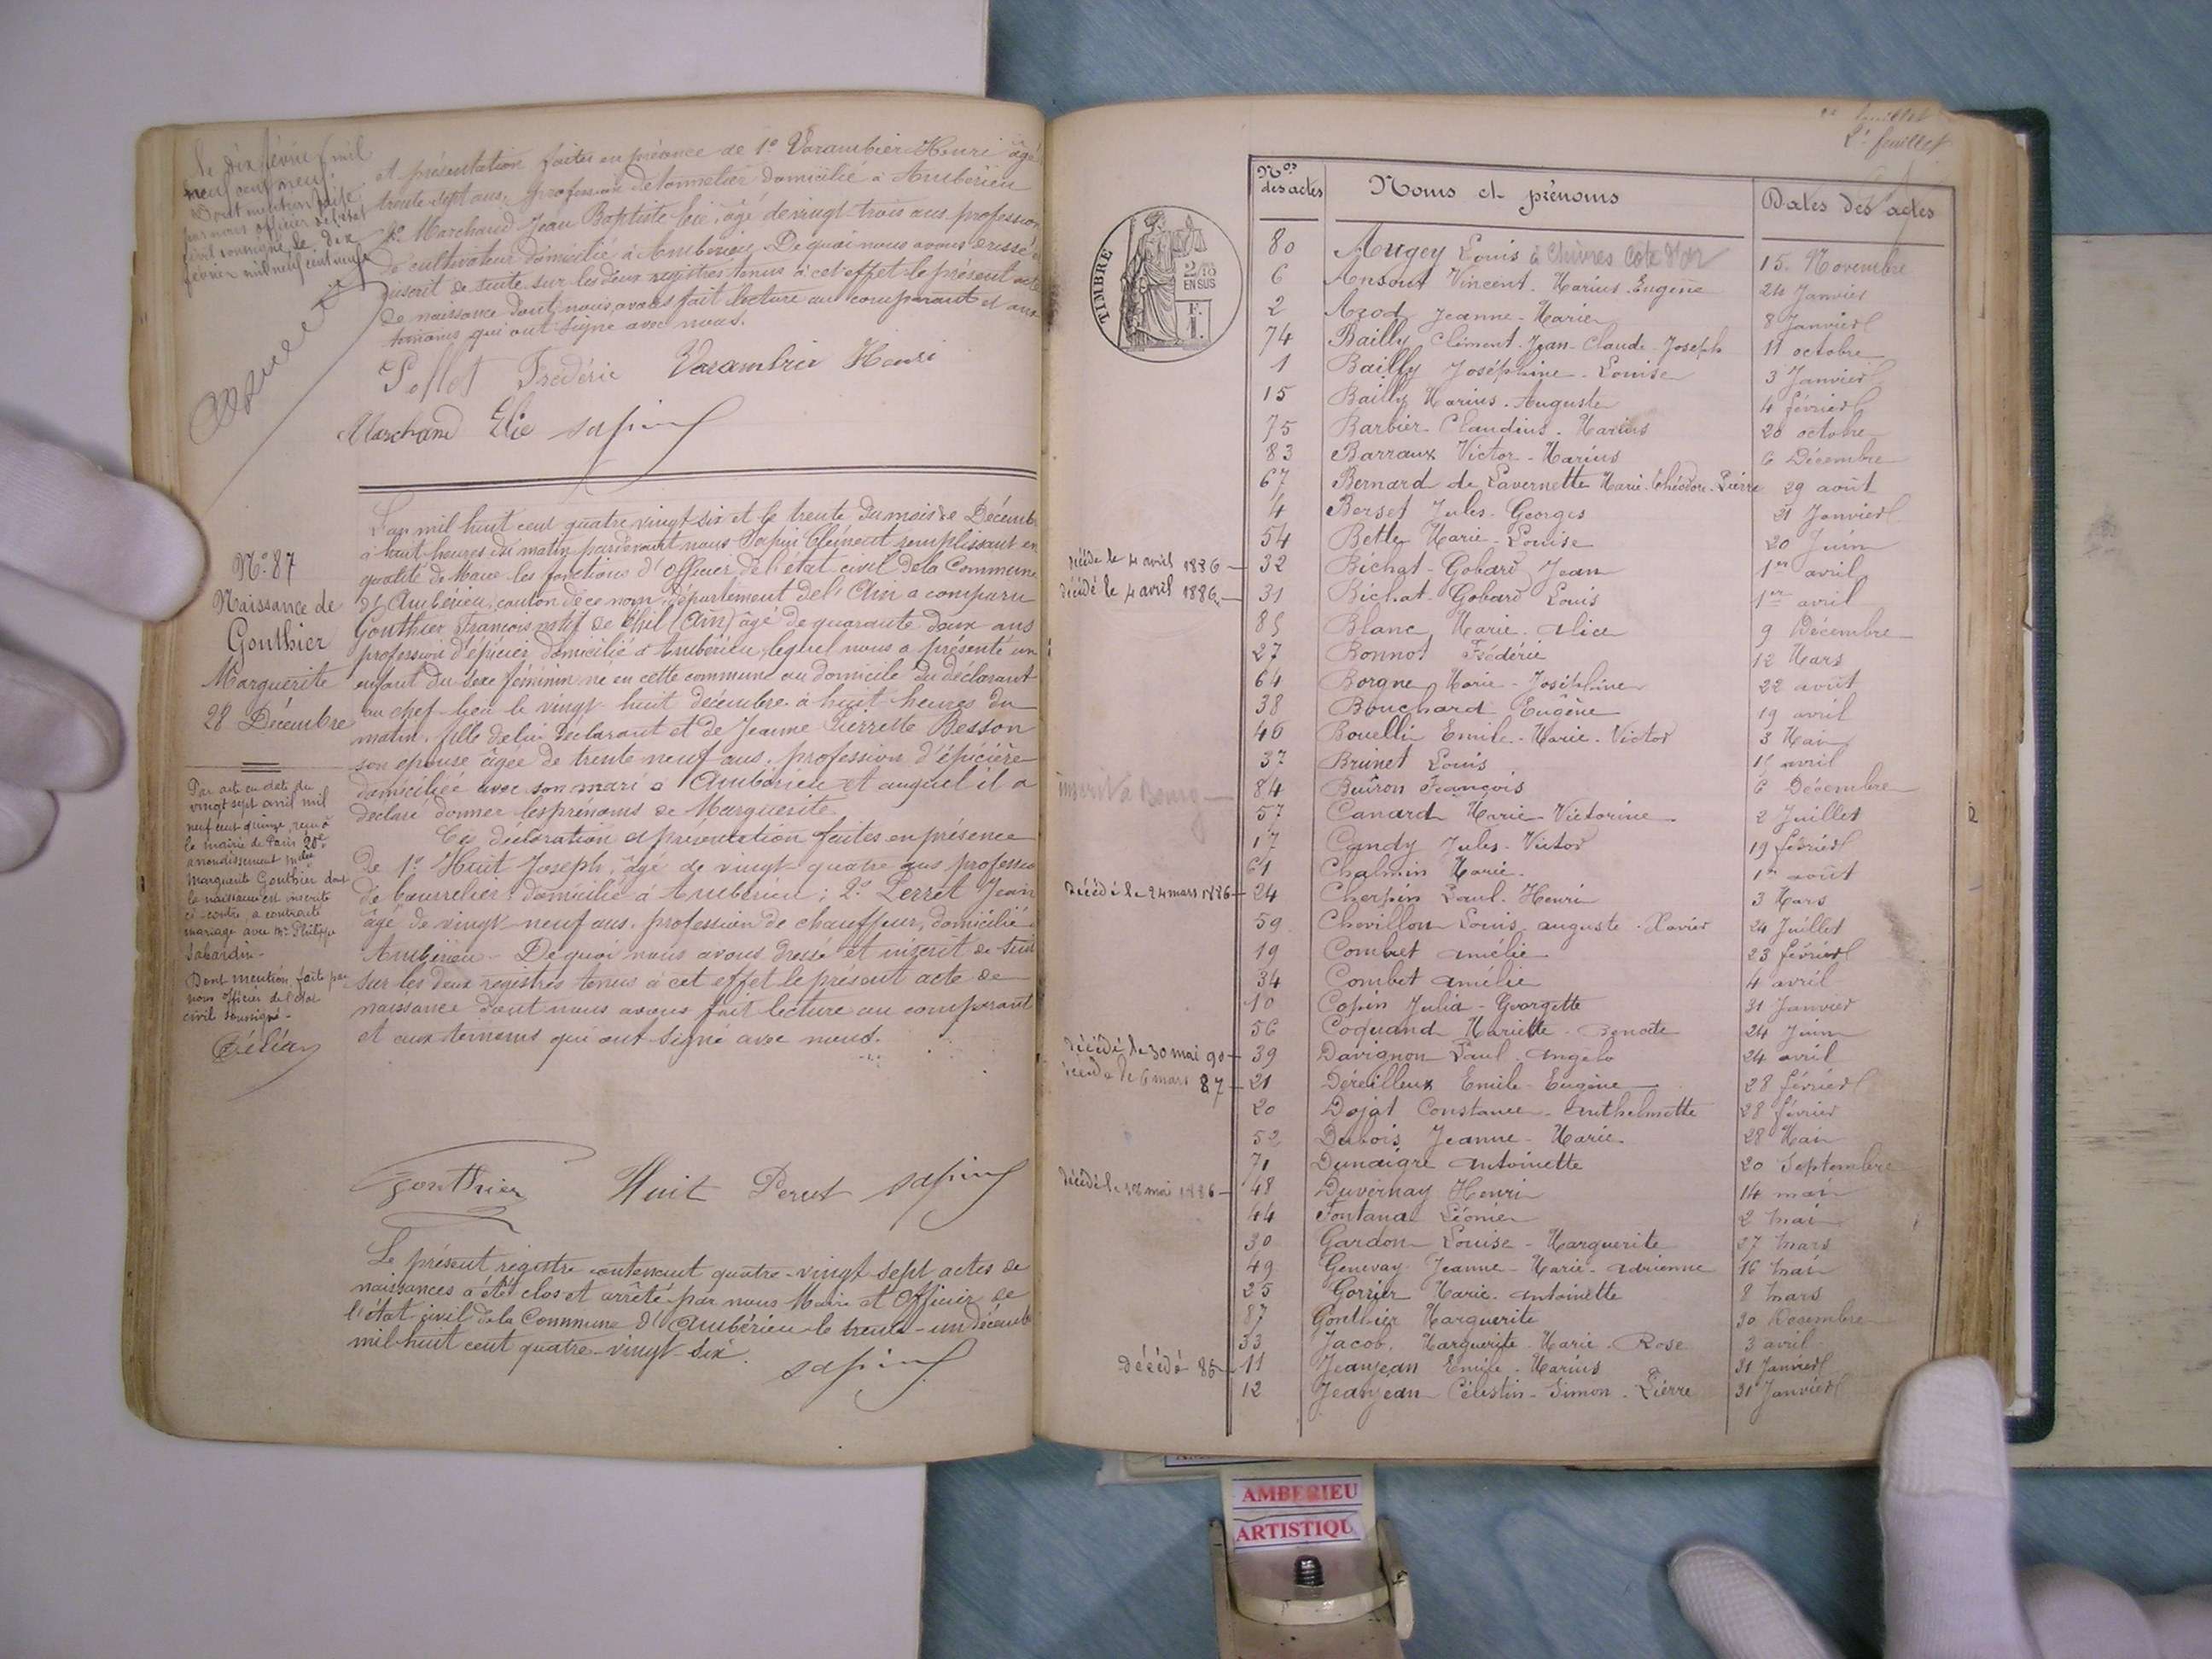 Le dix février mil
neuf cent neuf.
Dont mention faite
par nous officier de l'état
civil soussigné le dix
février mil neuf cent neuf
et présentation faites en présence de 1° Varambier Henri âgé
trente-sept ans, profession de tonnelier domicilié à Ambérieu
2° Marchand Jean Baptiste Elie, âgé de vingt-trois ans profession
de cultivateur domicilié à Ambérieu. De quoi nous avons dressé et
inscrit de suite sur les deux registres tenus à cet effet le présent acte
de naissance dont nous avons fait lecture au comparant et aux
témoins qui ont signé avec nous.
Pollet Frédéric Varambier Henri
Marchand Elie Sapin
N° 87
Naissance de
Gonthier
Marguerite
28 Décembre
L'an mil huit cent quatre vingt six et le trente du mois de Décembre
à huit heures du matin pardevant nous Sapin Clément remplissant en
qualité de Maire les fonctions d'Officier de l'état civil de la Commune
d'Ambérieu, canton de ce nom, département de l'Ain a comparu
Gonthier François natif de (Ain) âgé de quarante deux ans
profession d'épicier, domicilié à Ambérieu, lequel nous a présenté un
enfant du sexe féminin né en cette commune au domicile du déclarant
au chef-lieu le vingt-huit décembre à huit heures du
matin, fille de lui déclarant et de Jeanne Pierrette Besson
son épouse âgée de trente neuf ans, profession d'épicière
domiciliée avec son mari à Ambérieu et auquel il a
déclaré donner les prénoms de Marguerite.
Ces déclaration et présentation faites en présence
de 1° Huit Joseph, âgé de vingt-quatre ans profession
de bourrelier domicilié à Ambérieu; 2° Perret Jean
âgé de vingt-neuf ans, profession de chauffeur, domicilié à
Ambérieu. De quoi nous avons dressé et inscrit de suite
sur les deux registres tenus à cet effet le présent acte de
naissance dont nous avons fait lecture au comparant
et aux témoins qui ont signé avec nous.
Par acte en date du
vingt sept avril mil
neuf cent quinze, reçu à
la mairie de Paris 20e
arrondissement Mlle
Marguerite Gonthier dont
la naissance est inscrite
ci-contre, a contracté
mariage avec Mr Philippe
Sabardin.
Dont mention faite par
nous officier de l'état
civil soussigné.
Gonthier Huit Perret Sapin
Le présent registre contenant quatre-vingt sept actes de
naissances a été clos et arrêté par nous Maire et Officier de
l'état civil de la Commune d'Ambérieu le trente-un décembre
mil huit cent quatre-vingt-six.
Sapin
2e feuillet
2e feuillet
TIMBRE
2/10 EN SUS
F. 1.
Nos des actes Noms et prénoms Dates des actes
80 Mugey Louis à Chivres Cote d'Or 15 Novembre
6 Ansout Vincent-Marius-Eugène 24 Janvier
2 Azod Jeanne-Marie 8 Janvier
74 Bailly Clément-Jean-Claude-Joseph 11 octobre
1 Bailly Joséphine-Louise 3 Janvier
15 Bailly Marius-Auguste 4 février
75 Barbier Claudius-Marius 20 octobre
83 Barraux Victor-Marius 6 Décembre
67 Bernard de Lavernette Marie-Théodore-Pierre 29 août
4 Berset Jules-Georges 21 Janvier
54 Bettey Marie-Louise 20 Juin
décédé le 4 avril 1886 - 32 Bichat-Gobard Jean 1er avril
décédé le 4 avril 1886 - 31 Bichat-Gobard Louis 1er avril
85 Blanc Marie-Alice 9 Décembre
27 Bonnot Frédéric 12 Mars
64 Borgne Marie-Joséphine 22 août
38 Bouchard Eugène 19 avril
46 Bouelli Emile-Marie-Victor 3 Mai
37 Brunet Louis avril
inscrit à Bourg - 84 Buiron François 6 Décembre
57 Canard Marie-Victorine 2 Juillet
17 Candy Jules-Victor 19 février
61 Chalmin Marie 1er août
Décédé le 24 mars 1886 - 24 Cherpin Paul-Henri 3 Mars
59 Chevillon Louis-Auguste-Xavier 24 Juillet
19 Combet Amélie 23 février
34 Combet Amélie 4 avril
10 Copin Julia-Georgette 31 Janvier
56 Coquand Mariette-Benoite 24 Juin
Décédé le 30 mai 90 - 39 Davignon Paul-Angelo 24 avril
Décédé le 6 mars 87 - 21 Déreilleux Emile-Eugène 28 février
20 Dojat Constance-Anthelmette 28 février
52 Dubois Jeanne-Marie 28 Mai
71 Dunaigre Antoinette 20 Septembre
Décédé le 18 mai 1886 - 48 Duvernay Henri 14 mai
44 Fontana Léonie 2 mai
30 Gardon Louise-Marguerite 27 mars
49 Genevay Jeanne-Marie-Adrienne 16 mai
25 Gorrier Marie-Antoinette 8 mars
87 Gonthier Marguerite 30 Décembre
33 Jacob Marguerite-Marie-Rose 3 avril
Décédé 86 - 11 Jeanjean Emile-Marius 31 Janvier
12 Jeanjean Célestin-Simon-Pierre 31 Janvier
AMBERIEU
ARTISTIQU